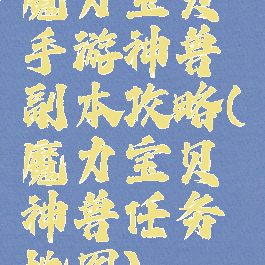 魔力宝贝
手游神兽
副本攻略(
魔力宝贝
神兽任务